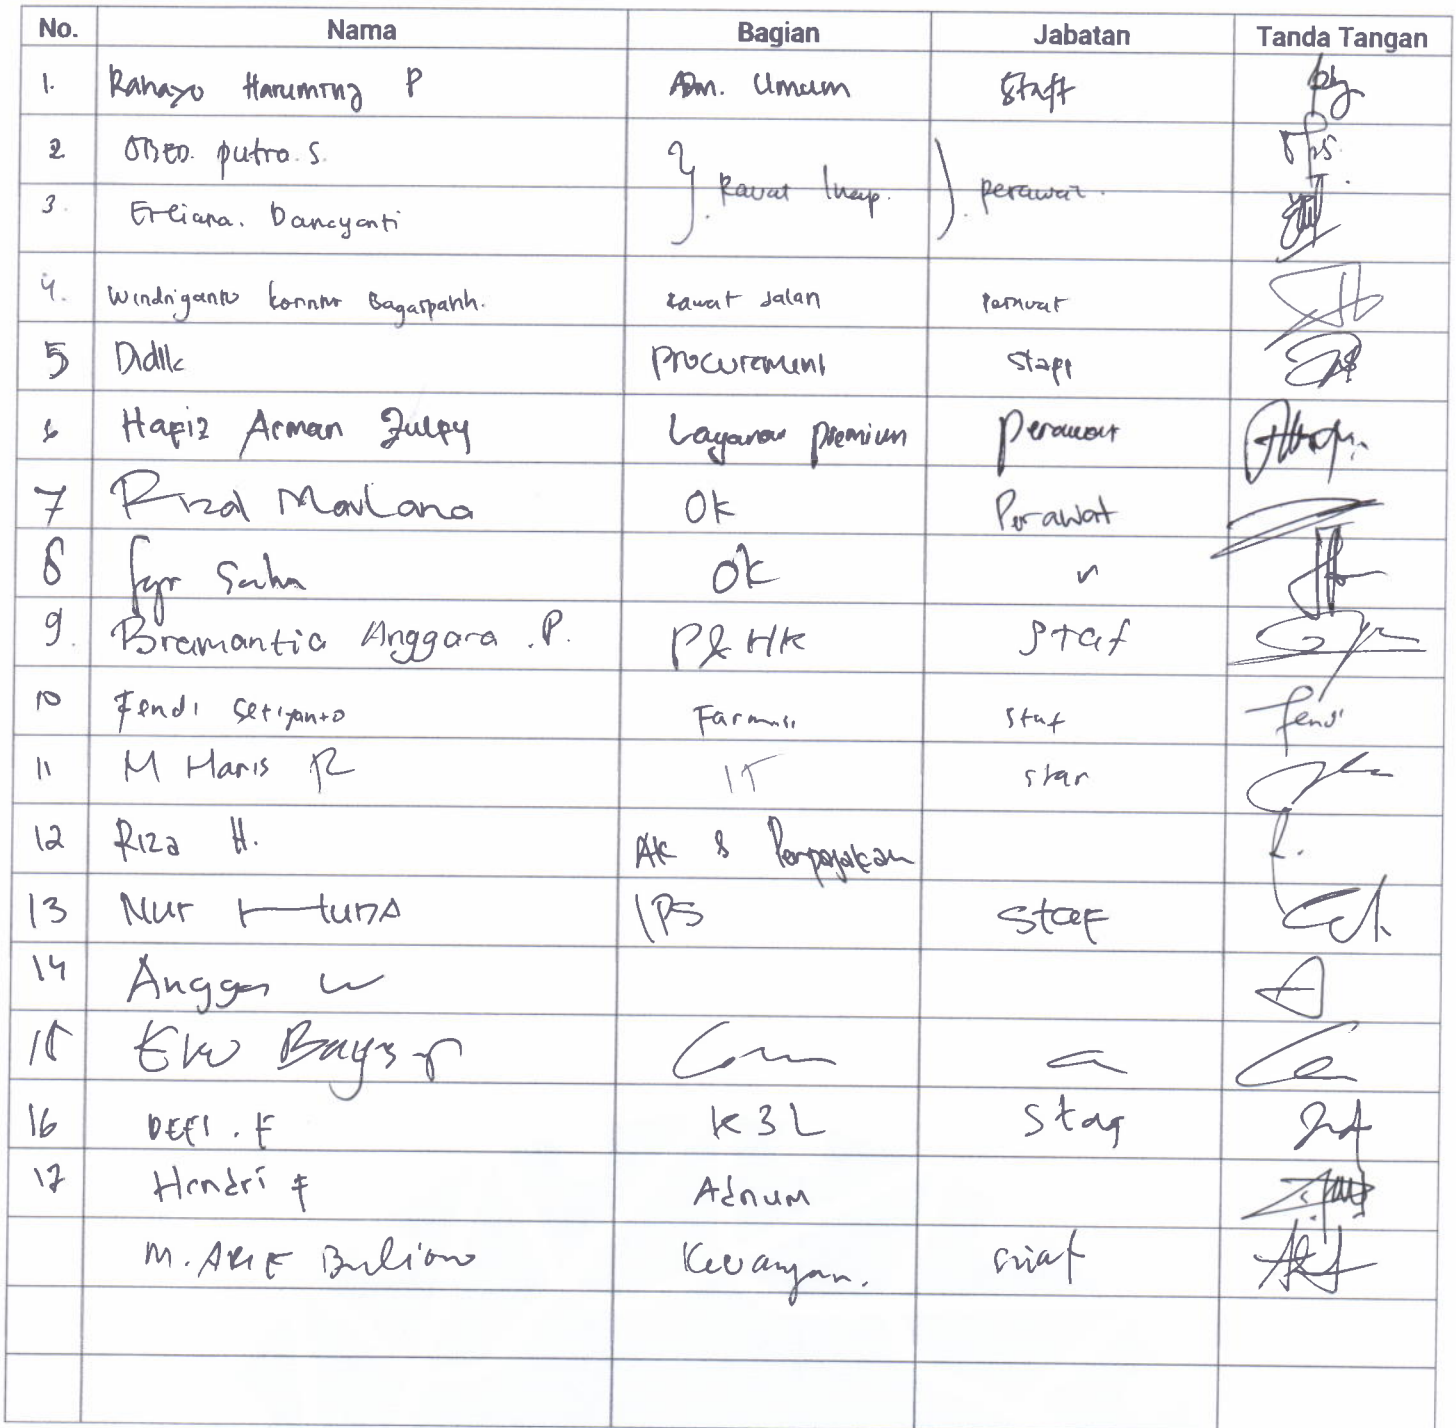 No. Nama Bagian Jabatan Tanda Tangan
1. Rahayu Haruming P Adm. Umum Staff
2 OBED. putra. S.
} Rawat Inap. ) perawat.
3. Erliana. Damayanti
4. Windriganto Bagaspath. rawat Jalan perawat
5 Didik Procurement Staff
6 Hafiz Arman Zulfy Layanan Premium Perawat
7 Rizal Maulana OK Perawat
8 OK "
9. Bramantia Anggara .P. P& HK Staf
10 Fendi Setiyanto Farmasi Staf fendi
11 M Haris R IT staf
12 Riza H. AK & Perpajakan
13 Nur Huda IPS Staf
14 Angga W
15 Eko Bayu
16 DEFI . F K3L Staf
17 Hendri F Adnum
M. ARIF Keuangan. staf